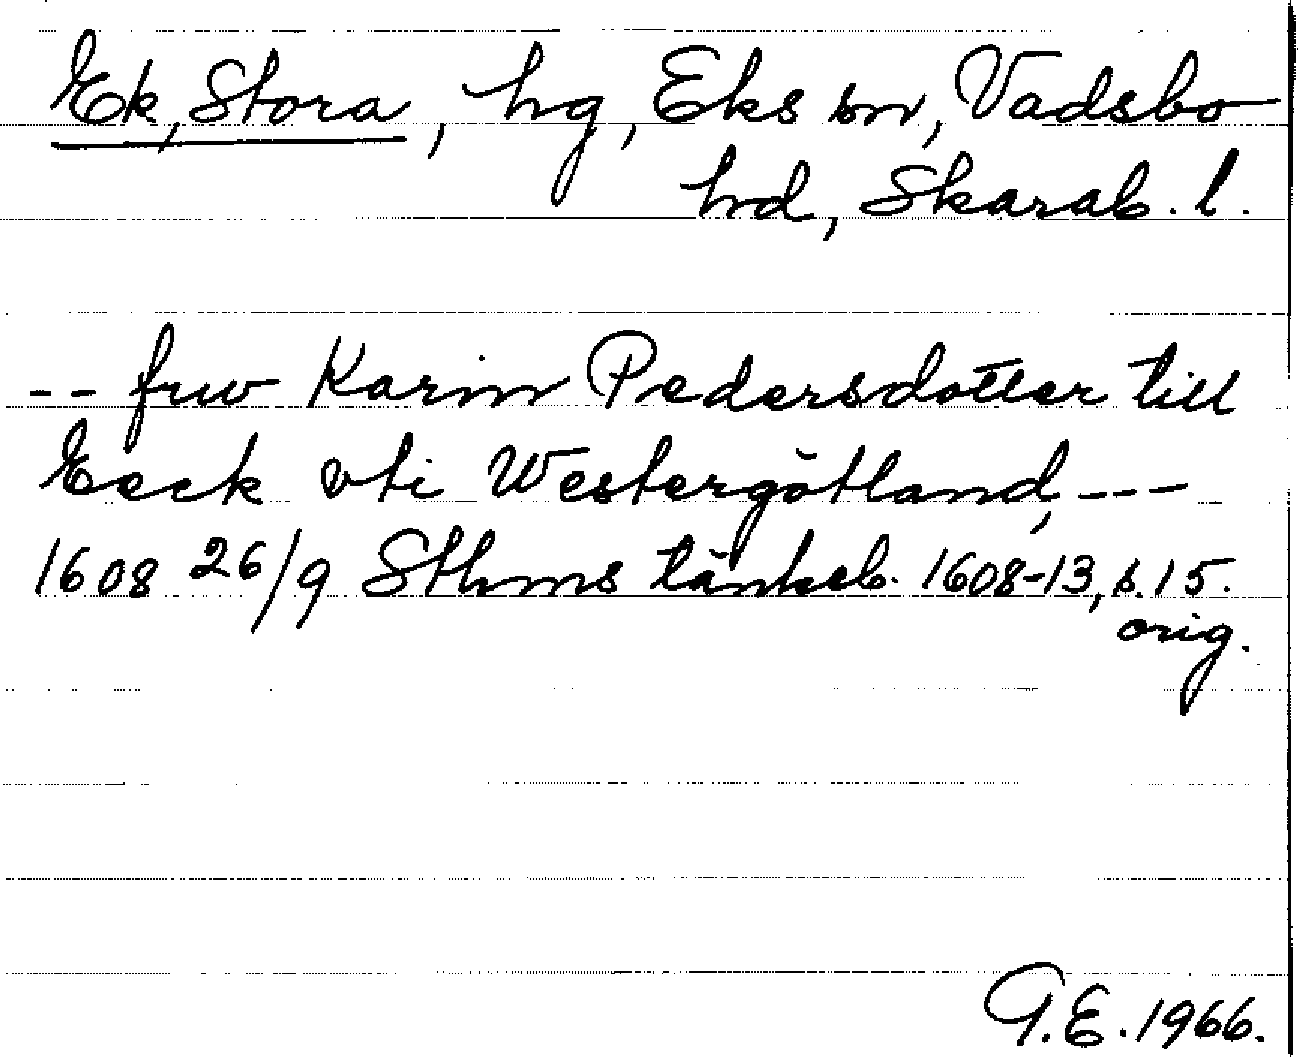 Ek, Stora, hg, Eks sn, Vadsbo
hd, Skarab. l.
-- fruw Karin Pedersdotter till
Eeck vti Westergötland, ---
1608 26/9 Sthms tänkeb. 1608-13, s. 15.
orig.
G.E. 1966.